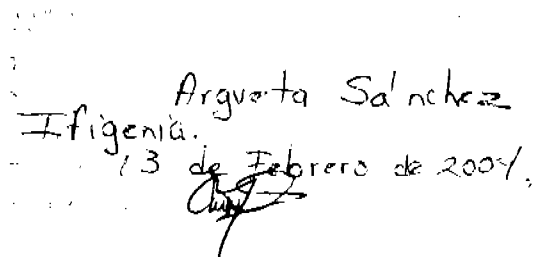 Argueta Sánchez
Ifigenia.
13 de Febrero de 2004.